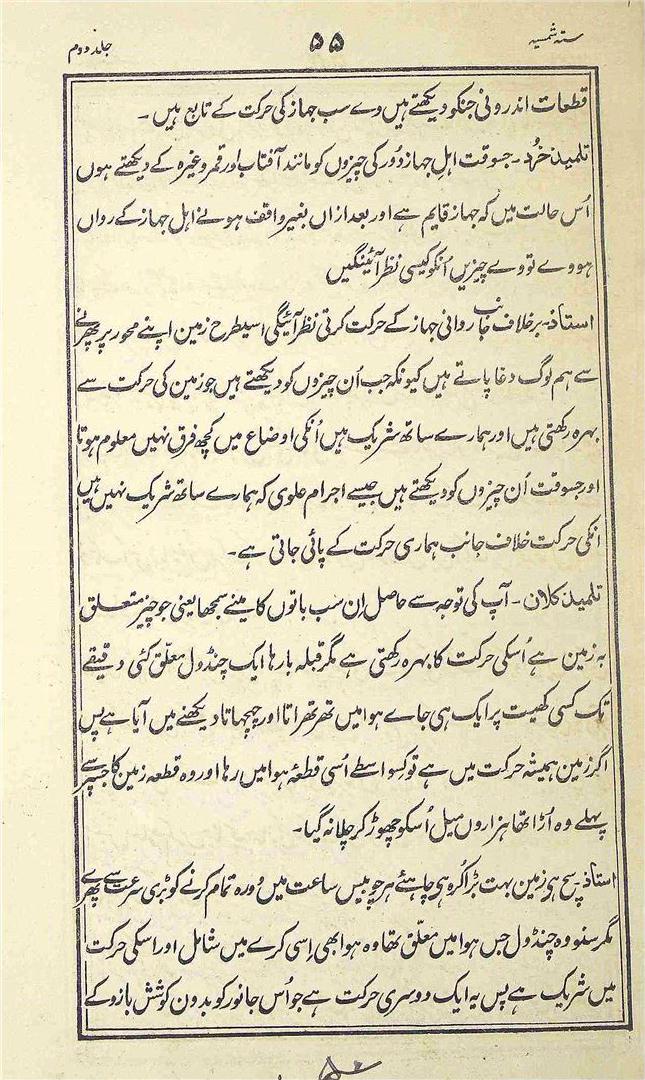 ستہ شمسیہ ۵۵ جلد دوم
قطعات اندرونی جنکو دیکھتے ہیں وے سب جہاز کی حرکت کے تابع ہیں ۔
تلمیذ خُرد ۔ جسوقت اہل جہاز دور کی چیزوں کو مانند آفتاب اور قمر وغیرہ کے دیکھتے ہوں
اُس حالت میں کہ جہاز قایم ہے اور بعد ازاں بغیر واقف ہونے اہل جہاز کے رواں
ہووے تو وے چیزیں اُنکو کیسی نظر آئینگیں
استاذ ۔ برخلاف جانب روانی جہاز کے حرکت کرتی نظر آئیگی اسیطرح زمین اپنے محور پر پھرنے
سے ہم لوگ دغا پاتے ہیں کیونکہ جب اُن چیزوں کو دیکھتے ہیں جو زمین کی حرکت سے
بہرہ رکھتی ہیں اور ہمارے ساتھ شریک ہیں اُنکی اوضاع میں کچھ فرق نہیں معلوم ہوتا
اور جسوقت اُن چیزوں کو دیکھتے ہیں جیسے اجرام علوی کہ ہمارے ساتھ شریک نہیں ہیں
انکی حرکت خلاف جانب ہماری حرکت کے پائی جاتی ہے ۔
تلمیذ کلان ۔ آپ کی توجہ سے حاصل اِن سب باتوں کا مینے سمجھا یعنی جو چیز متعلق
بہ زمین ہے اُسکی حرکت کا بہرہ رکھتی ہے مگر قبلہ بارہا ایک چنڈول معلّق کئی دقیقے
تک کسی کھیت پر ایک ہی جاے ہوا میں تھرتھراتا اور چہچہاتا دیکھنے میں آیا ہے پس
اگر زمین ہمیشہ حرکت میں ہے تو کسواسطے اُسی قطعۂ ہوا میں رہا اور وہ قطعہ زمین کا جسپر سے
پہلے وہ اُڑا تھا ہزاروں میل اُسکو چھوڑ کر چلا نہ گیا ۔
استاذ ۔ سچ ہی زمین بہت بڑا کرہ ہی چاہئے ہر چوبیس ساعت میں دورہ تمام کرنے کو بڑی سرعت سے پھرے
مگر سنو وہ چنڈول جس ہوا میں معلّق تھا وہ ہوا بھی اِسی کرے میں شامل اور اسکی حرکت
میں شریک ہے پس یہ ایک دوسری حرکت ہے جو اُس جانور کو بدون کوشش بازو کے